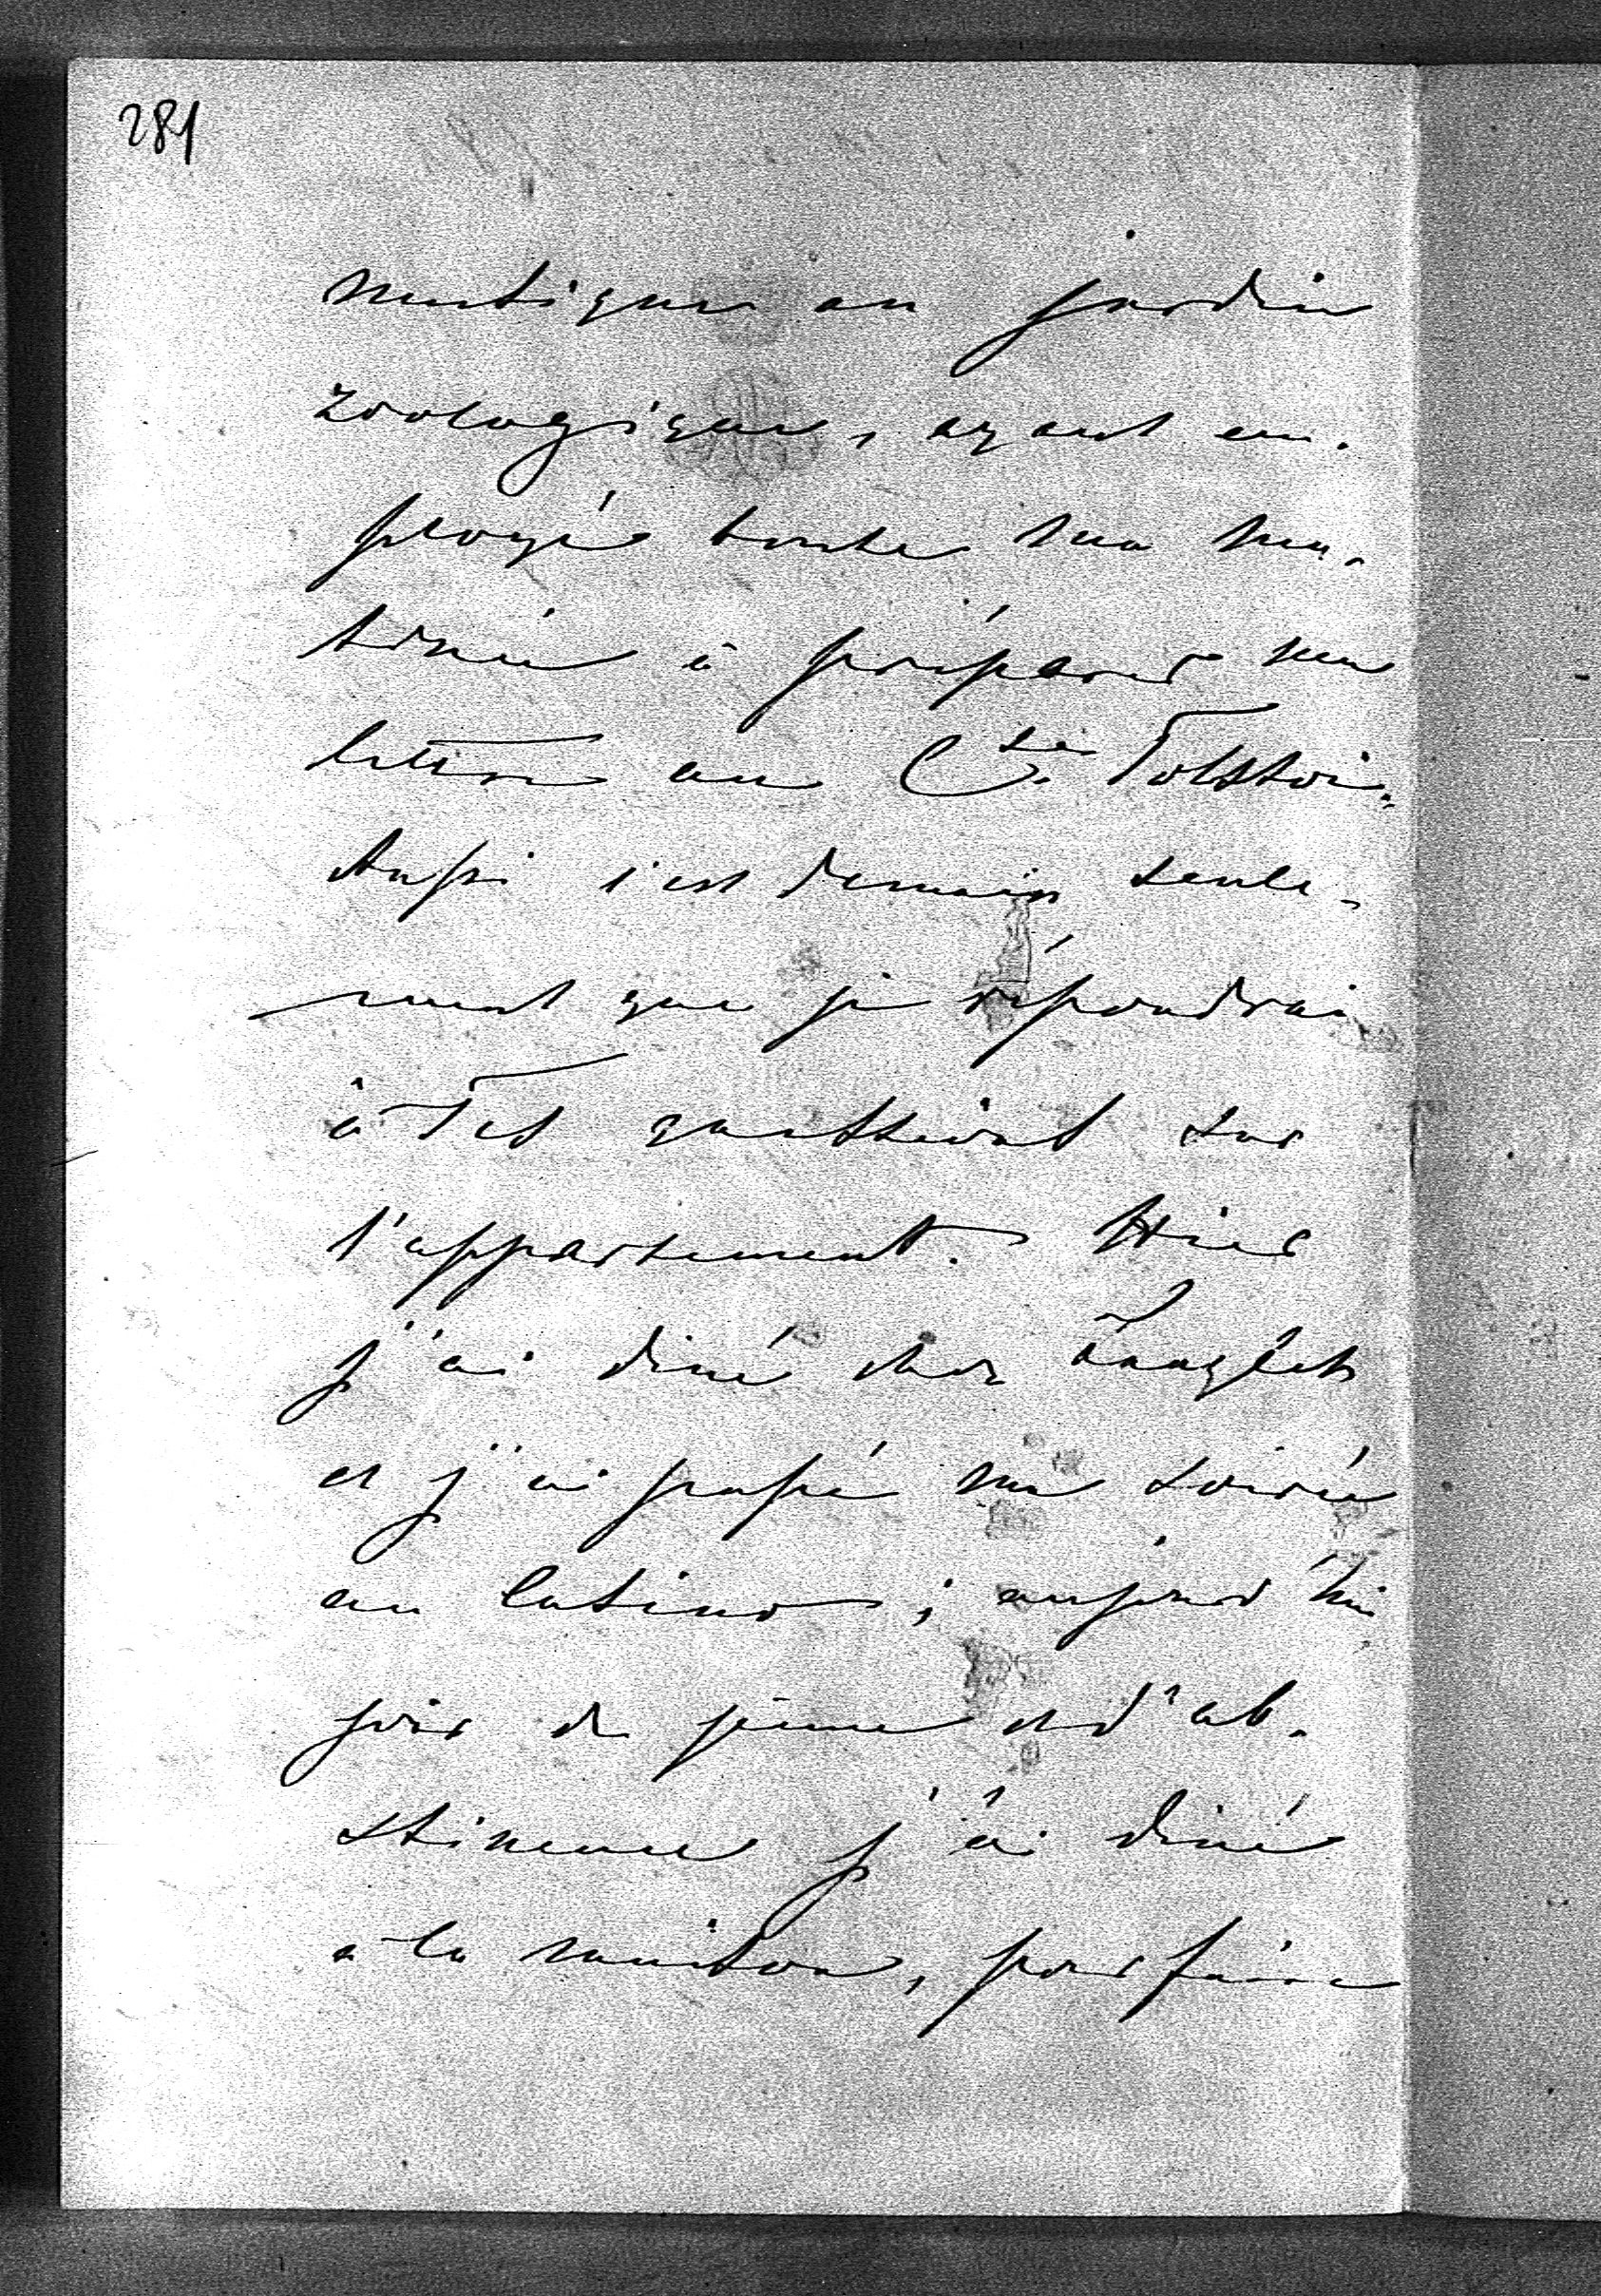 281
musique au jardin
zoologique, ayant em-
ployé toute ma ma-
tinée à préparer ma
lettre au Cte Tolstoi.
Aussi c'est demain seule-
ment que je répondrai
à Tes questions sur
l'appartement. Hier
j'ai diné chez
et j'ai passé ma soirée
au Casino; aujourd'hui
jour de jeune et d'ab-
stinence j'ai diné
à la maison, pour faire